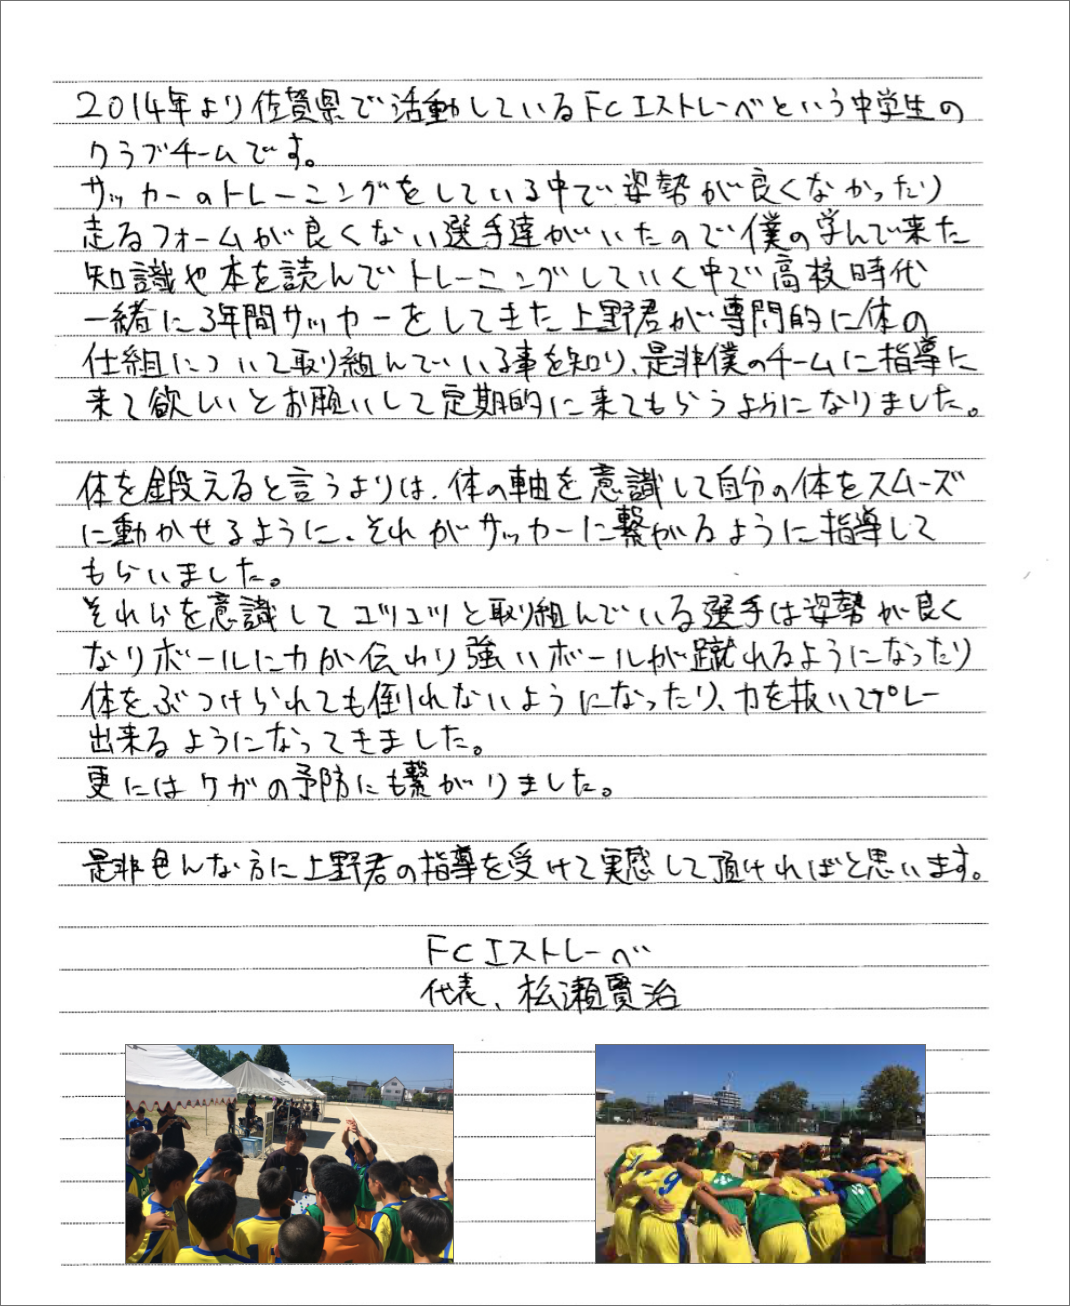 2014年より佐賀県で活動しているFCエストレーベという中学生の
クラブチームです。
サッカーのトレーニングをしている中で姿勢が良くなかったり
走るフォームが良くない選手達がいたので僕の学んで来た
知識や本を読んでトレーニングしていく中で高校時代
一緒に3年間サッカーをしてきた上野君が専門的に体の
仕組について取り組んでいる事を知り、是非僕のチームに指導に
来て欲しいとお願いして定期的に来てもらうようになりました。
体を鍛えると言うよりは、体の軸を意識して自分の体をスムーズ
に動かせるように、それがサッカーに繋がるように指導して
もらいました。
それらを意識してコツコツと取り組んでいる選手は姿勢が良く
なりボールに力が伝わり強いボールが蹴れるようになったり
体をぶつけられても倒れないようになったり、力を抜いてプレー
出来るようになってきました。
更にはケガの予防にも繋がりました。
是非色んな方に上野君の指導を受けて実感して頂ければと思います。
FCエストレーベ
代表、松瀬賢治
9